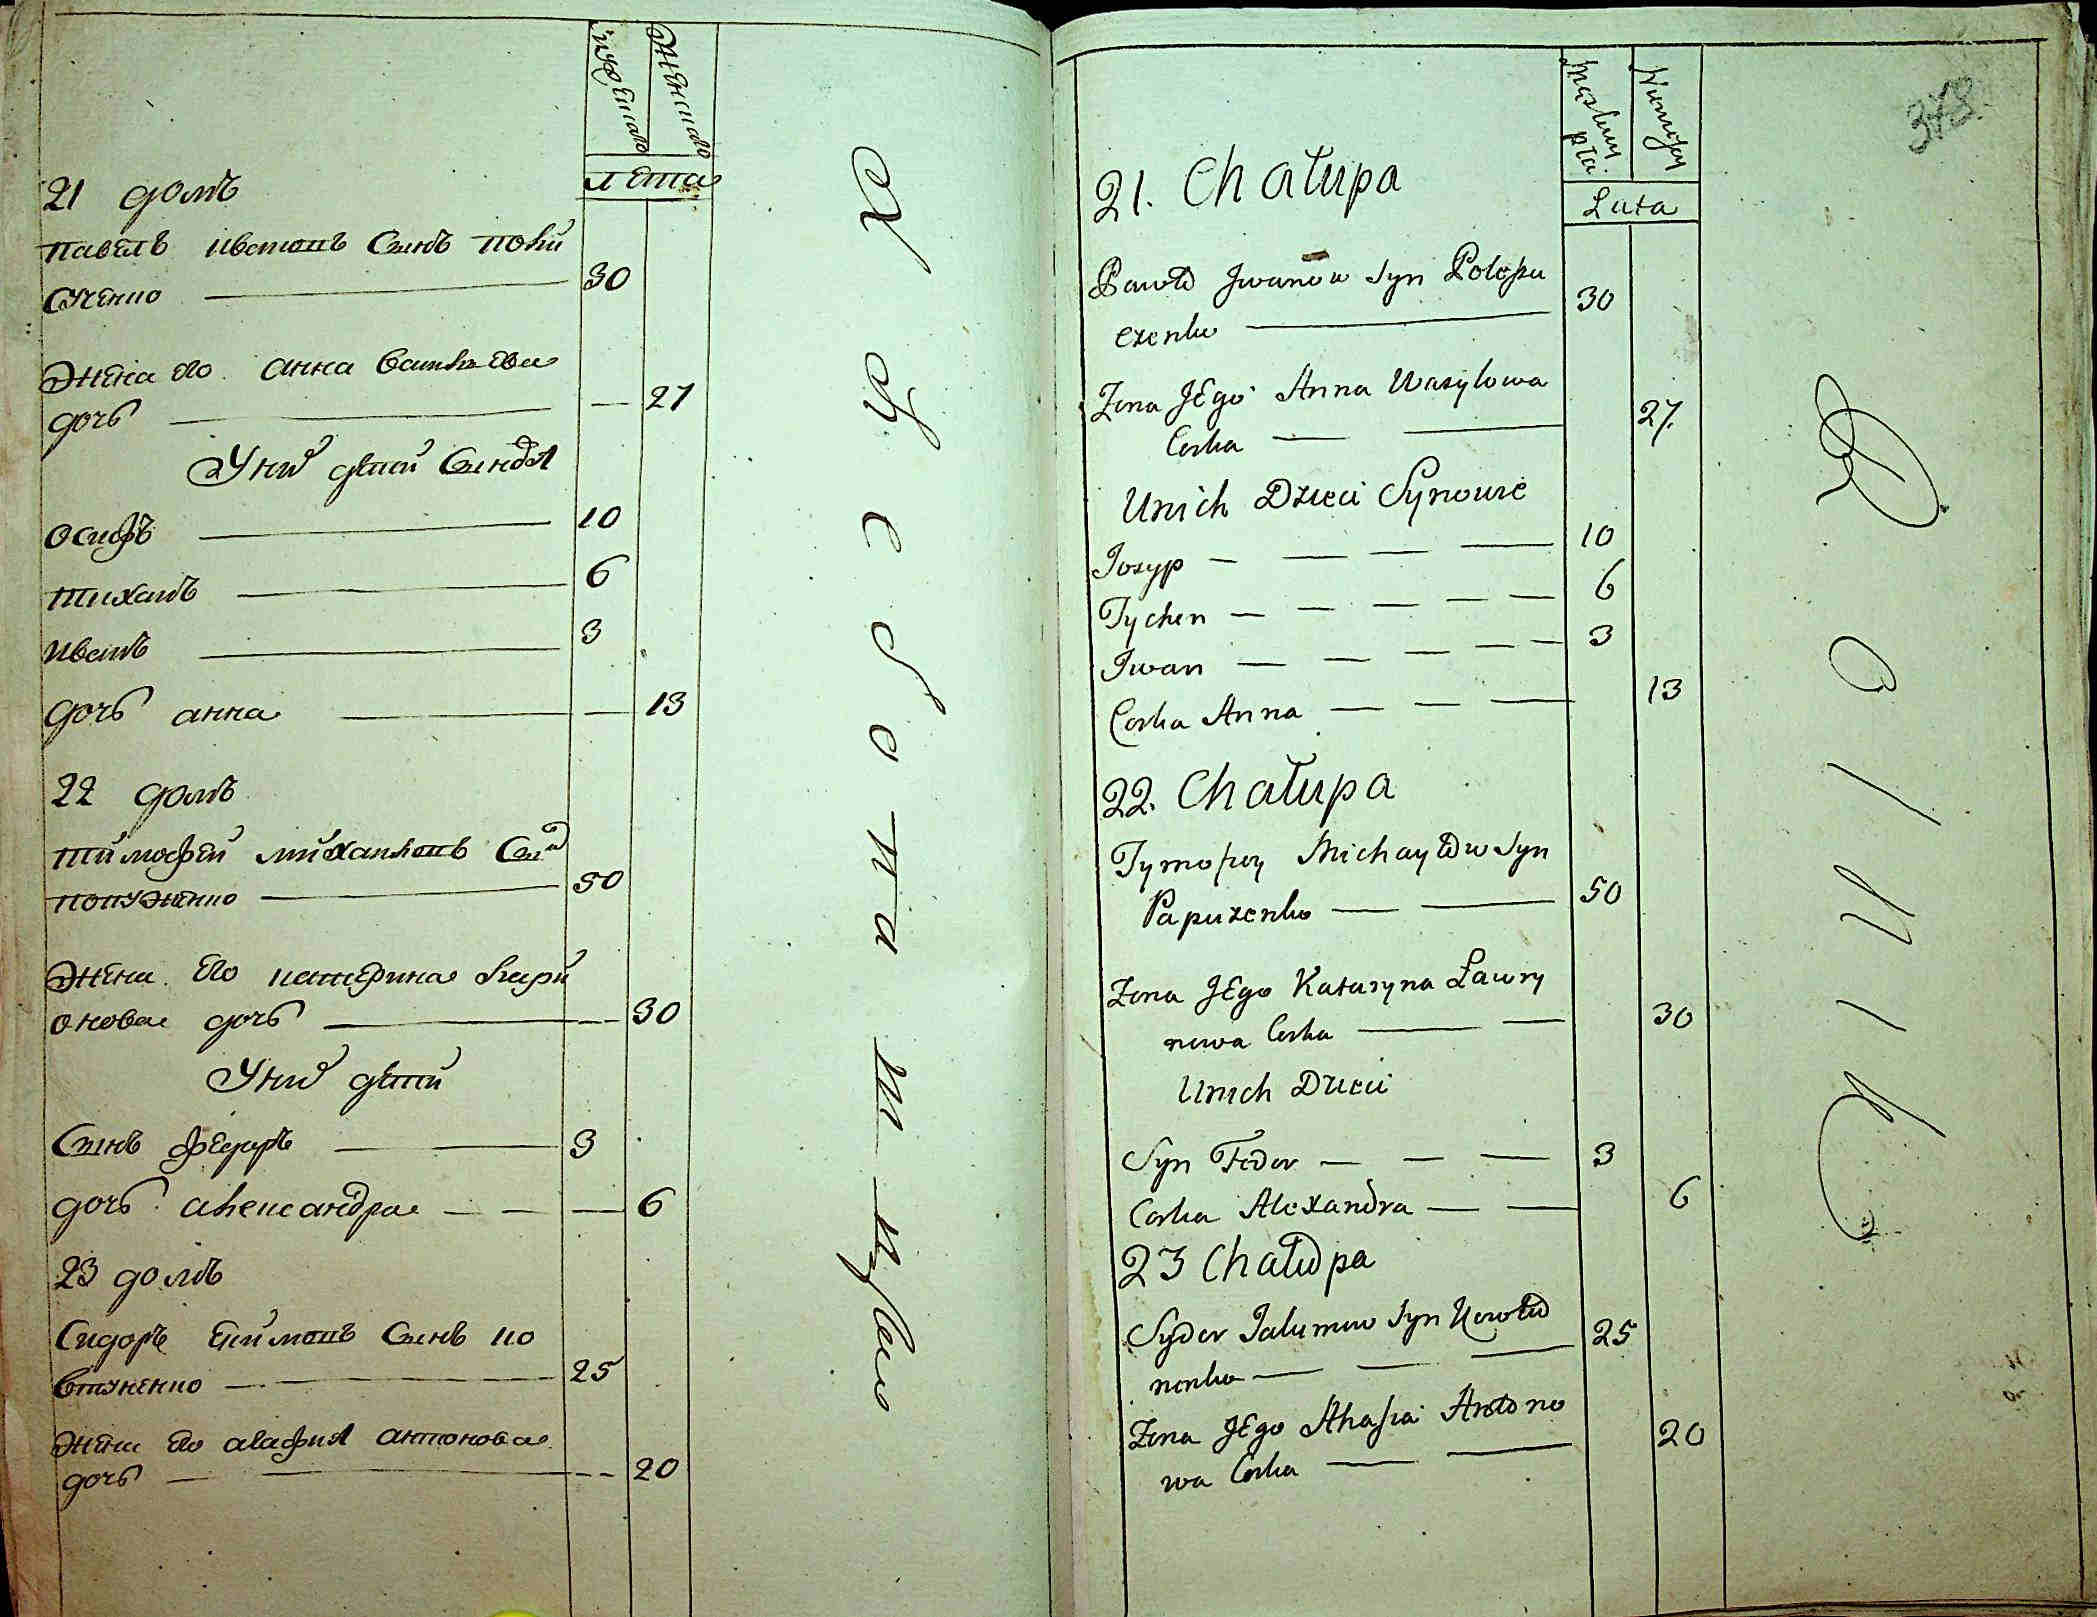 мужеска
женска
лѣта
21 домъ
павелъ ивановъ Сынъ поли
сученко 30
Жена его анна васильева
дочь 27
У них дѣти Синовя
осифъ 10
тиханъ 6
иванъ 3
дочь анна 13
22 домъ
тимофей михайловъ Сын
попуженко 50
Жена его катерина лари
онова дочь 30
У них дѣти
Сынъ федоръ 3
дочь александра 6
23 домъ
Сидоръ Сынъ ко
втуненко 25
жена его агафия антонова
дочь 20
378.
Męskiey
płci
Lata
21. Chałupa
Paweł Jwanow Syn Polesu
czenko 30
Zona JEgo Anna Wasylowa
Corka 27.
Unich Dzieci Synowie
Jozyp 10
Tychen 6
Jwan 3
Corka Anna 13
22. Chałupa
Tymofiey Michayłow Syn
Papuzenko 50
Zona JEgo Kataryna Ławry
nowa Corka 30
Unich Dzieci
Syn Fedor 3
Corka Alexandra 6
23 Chałupa
Sydor Syn Kowtu
nenko 25
Zona JEgo Ahafia Antono
wa Corka 20